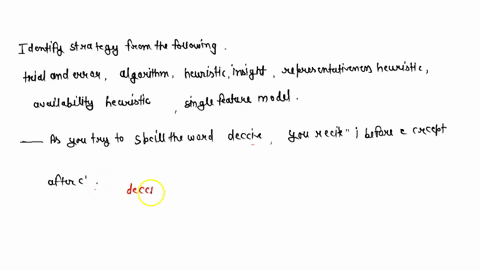 Identify strategy from the following.
trial and error, algorithm, heuristic, insight, representativeness heuristic,
availability heuristic, single feature model.
— As you try to speill the word deccive, you recite "i before e except
after c' :
decei